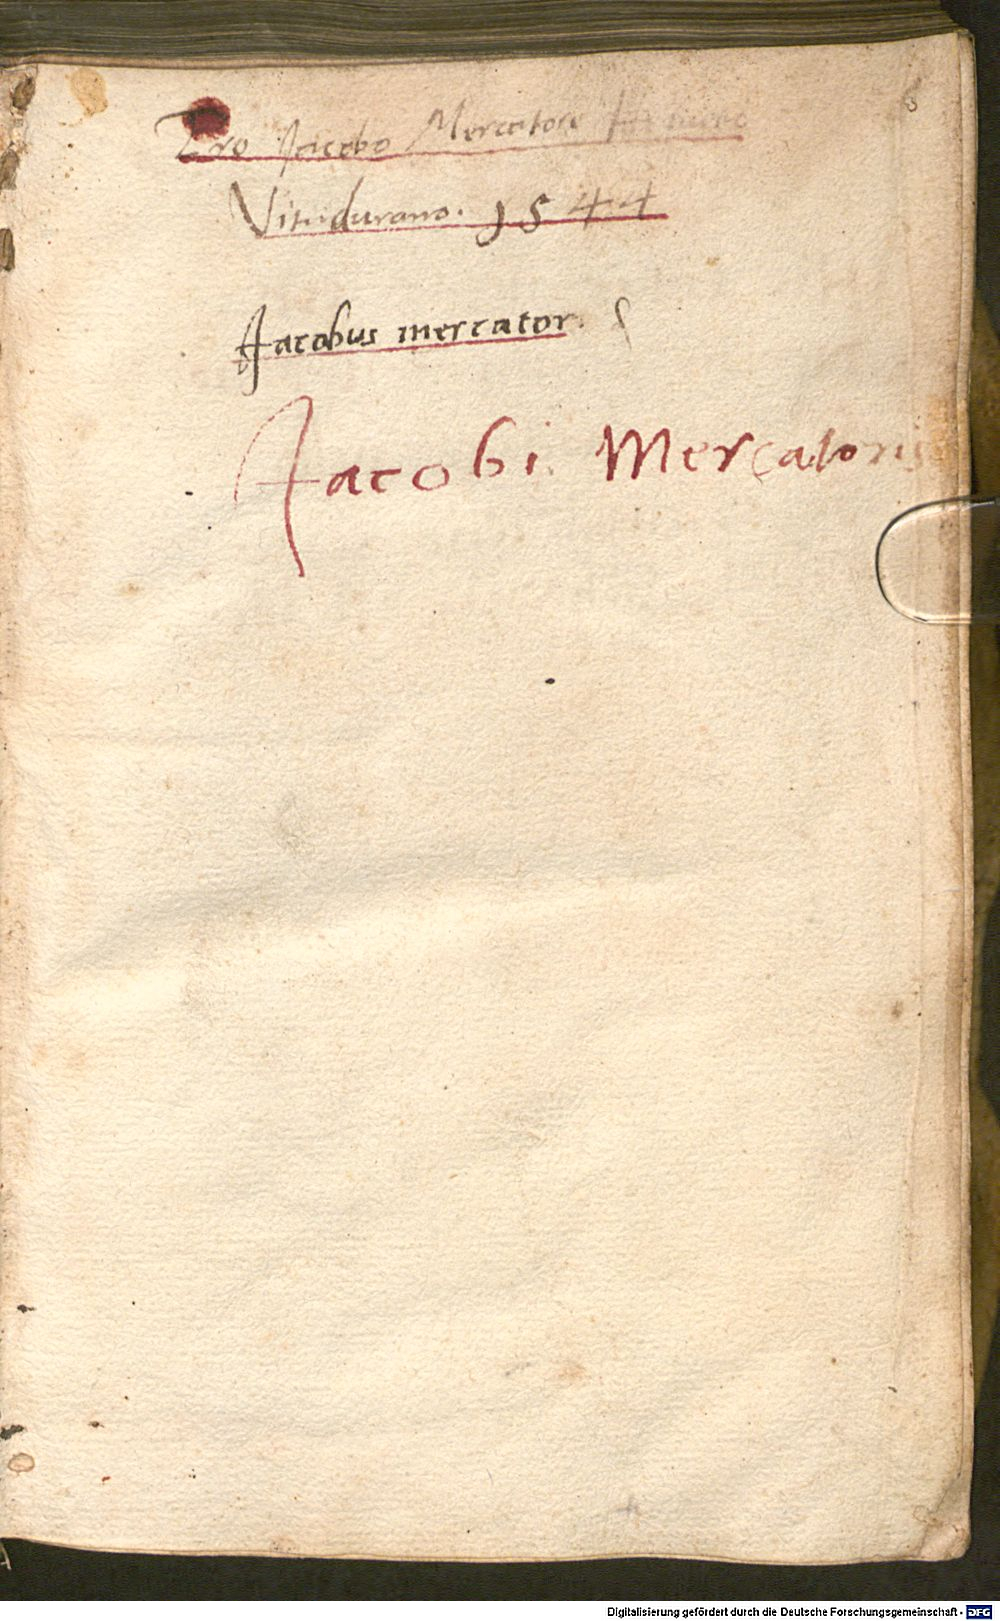 Pro Jacobo Mercatore
Vitudurano. 1544
Jacobus mercator
Jacobi Mercatoris
Digitalisierung gefördert durch die Deutsche Forschungsgemeinschaft - DFG